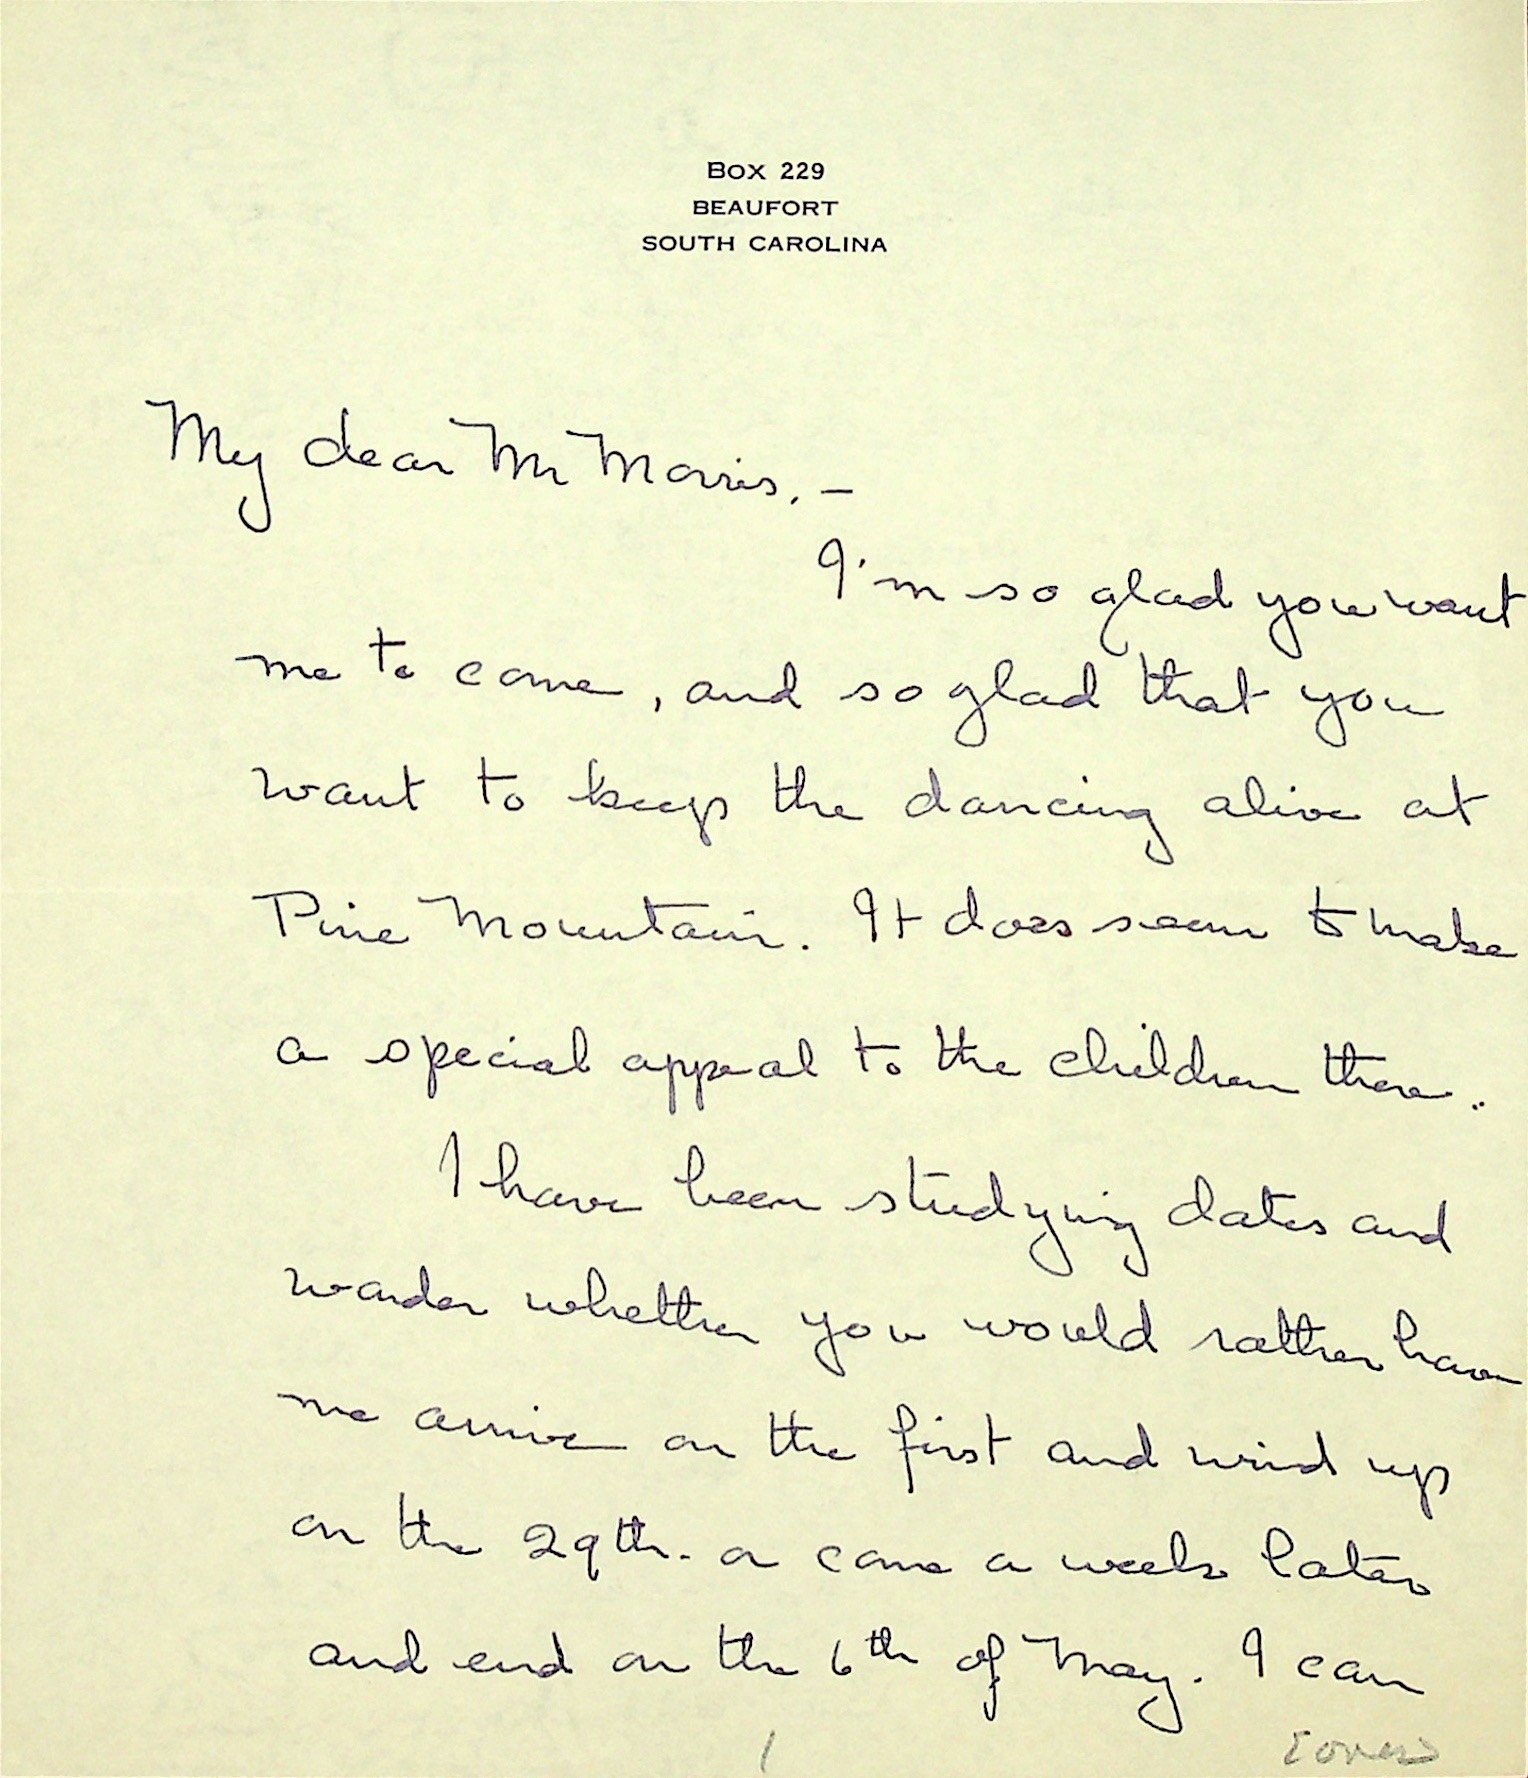 Box 229
BEAUFORT
SOUTH CAROLINA
My dear Mr Morris, –
I'm so glad you want
me to come, and so glad that you
want to keep the dancing alive at
Pine Mountain. It does seem to make
a special appeal to the children there.
I have been studying dates and
wonder whether you would rather have
me arrive on the first and wind up
on the 29th. or come a week later
and end on the 6th of May. I can
1
[over]